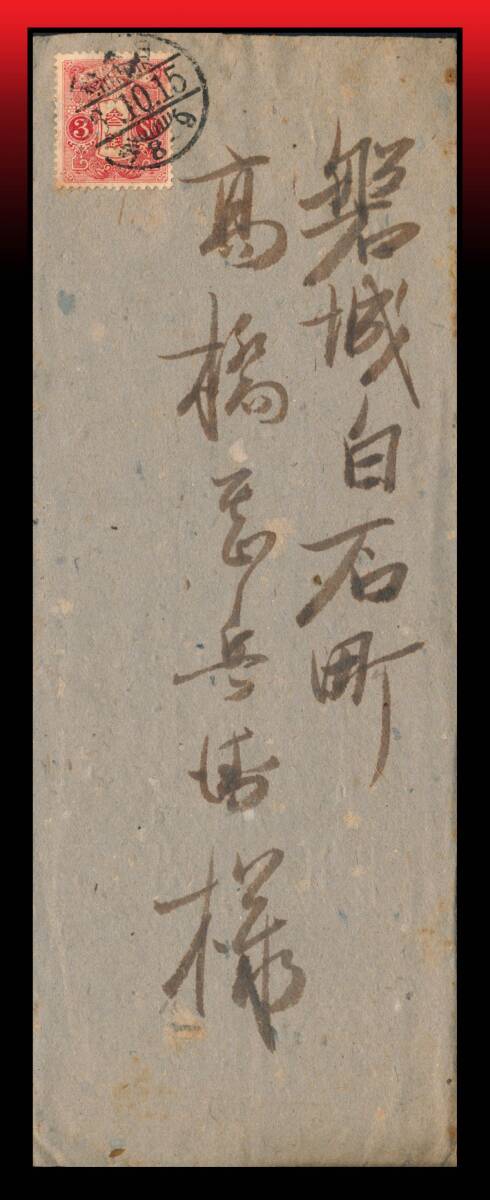 磐城白石町
高橋長兵衛様
3
10.15